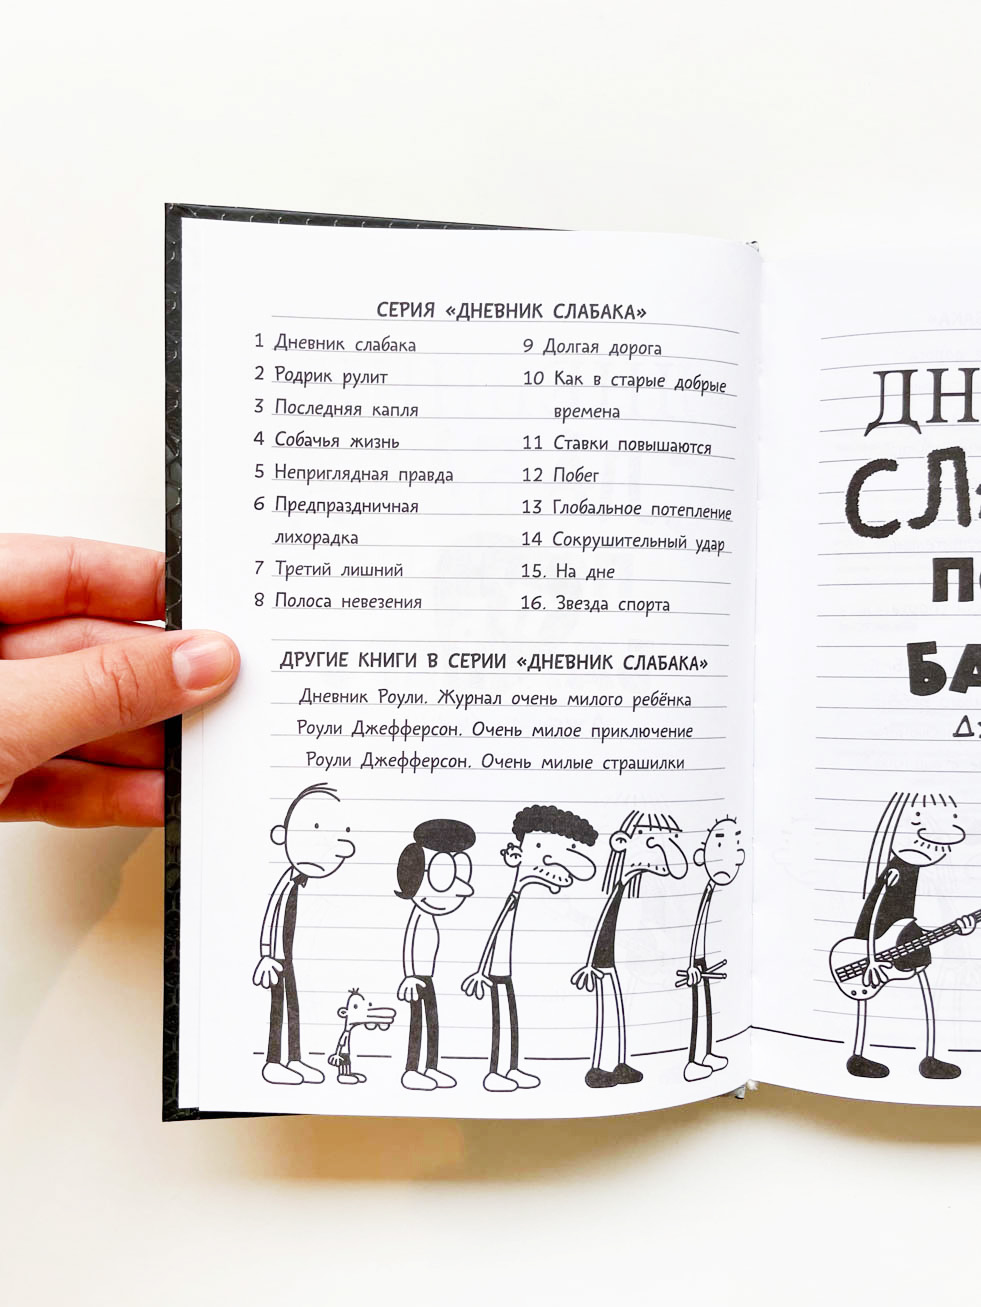 СЕРИЯ «ДНЕВНИК СЛАБАКА»
1 Дневник слабака
2 Родрик рулит
3 Последняя капля
4 Собачья жизнь
5 Неприглядная правда
6 Предпраздничная
лихорадка
7 Третий лишний
8 Полоса невезения
9 Долгая дорога
10 Как в старые добрые
времена
11 Ставки повышаются
12 Побег
13 Глобальное потепление
14 Сокрушительный удар
15. На дне
16. Звезда спорта
ДРУГИЕ КНИГИ В СЕРИИ «ДНЕВНИК СЛАБАКА»
Дневник Роули. Журнал очень милого ребёнка
Роули Джефферсон. Очень милое приключение
Роули Джефферсон. Очень милые страшилки